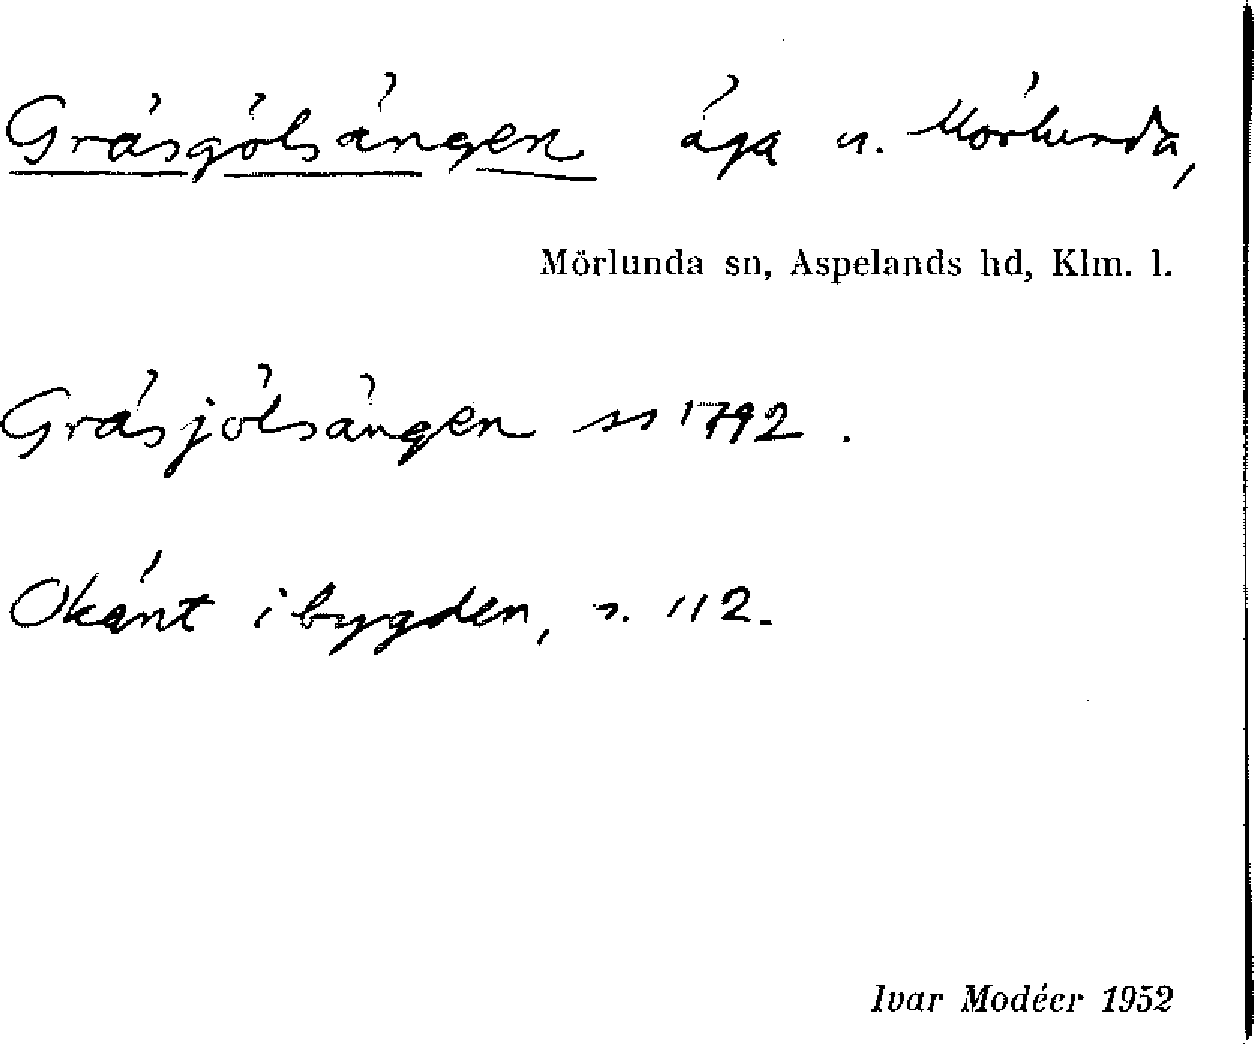 Gräsgölsängen äga u. Mörlunda,
Mörlunda sn, Aspelands hd, Klm. l.
Gräsjölsängen ss 1792.
Okänt i bygden, s. 112.
Ivar Modéer 1952